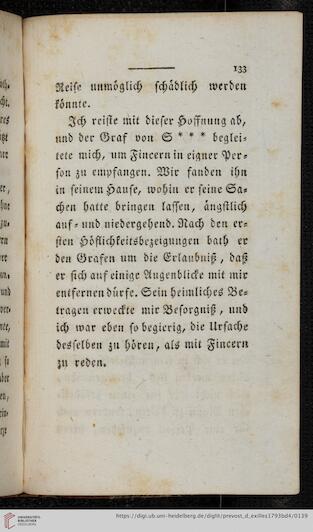 133
Reise unmöglich schädlich werden
könnte.
Ich reiste mit dieser Hoffnung ab,
und der Graf von S * * * beglei-
tete mich, um Fincern in eigner Per-
son zu empfangen. Wir fanden ihn
in seinem Hause, wohin er seine Sa-
chen hatte bringen lassen, ängstlich
auf- und niedergehend. Nach den er-
sten Höflichkeitsbezeigungen bath er
den Grafen um die Erlaubniß, daß
er sich auf einige Augenblicke mit mir
entfernen dürfe. Sein heimliches Be-
tragen erweckte mir Besorgniß, und
ich war eben so begierig, die Ursache
desselben zu hören, als mit Fincern
zu reden.
UNIVERSITÄTS-
BIBLIOTHEK
HEIDELBERG
https://digi.ub.uni-heidelberg.de/diglit/prevost_d_exiles1793bd4/0139